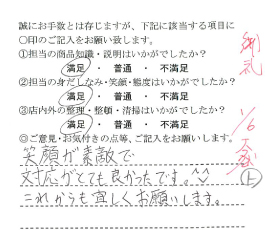 誠にお手数とは存じますが、下記に該当する項目に
〇印のご記入をお願い致します。
①担当の商品知識・説明はいかがでしたか?
満足 ・ 普通 ・ 不満足
②担当の身だしなみ・笑顔・態度はいかがでしたか?
満足 ・ 普通 ・ 不満足
③店内外の整理・整頓・清掃はいかがでしたか?
満足 ・ 普通 ・ 不満足
◎ご意見・お気付きの点等、ご記入をお願いします。
笑顔が素敵で
対応がとても良かったです。^^
これからも宜しくお願いします。
礼
1/6